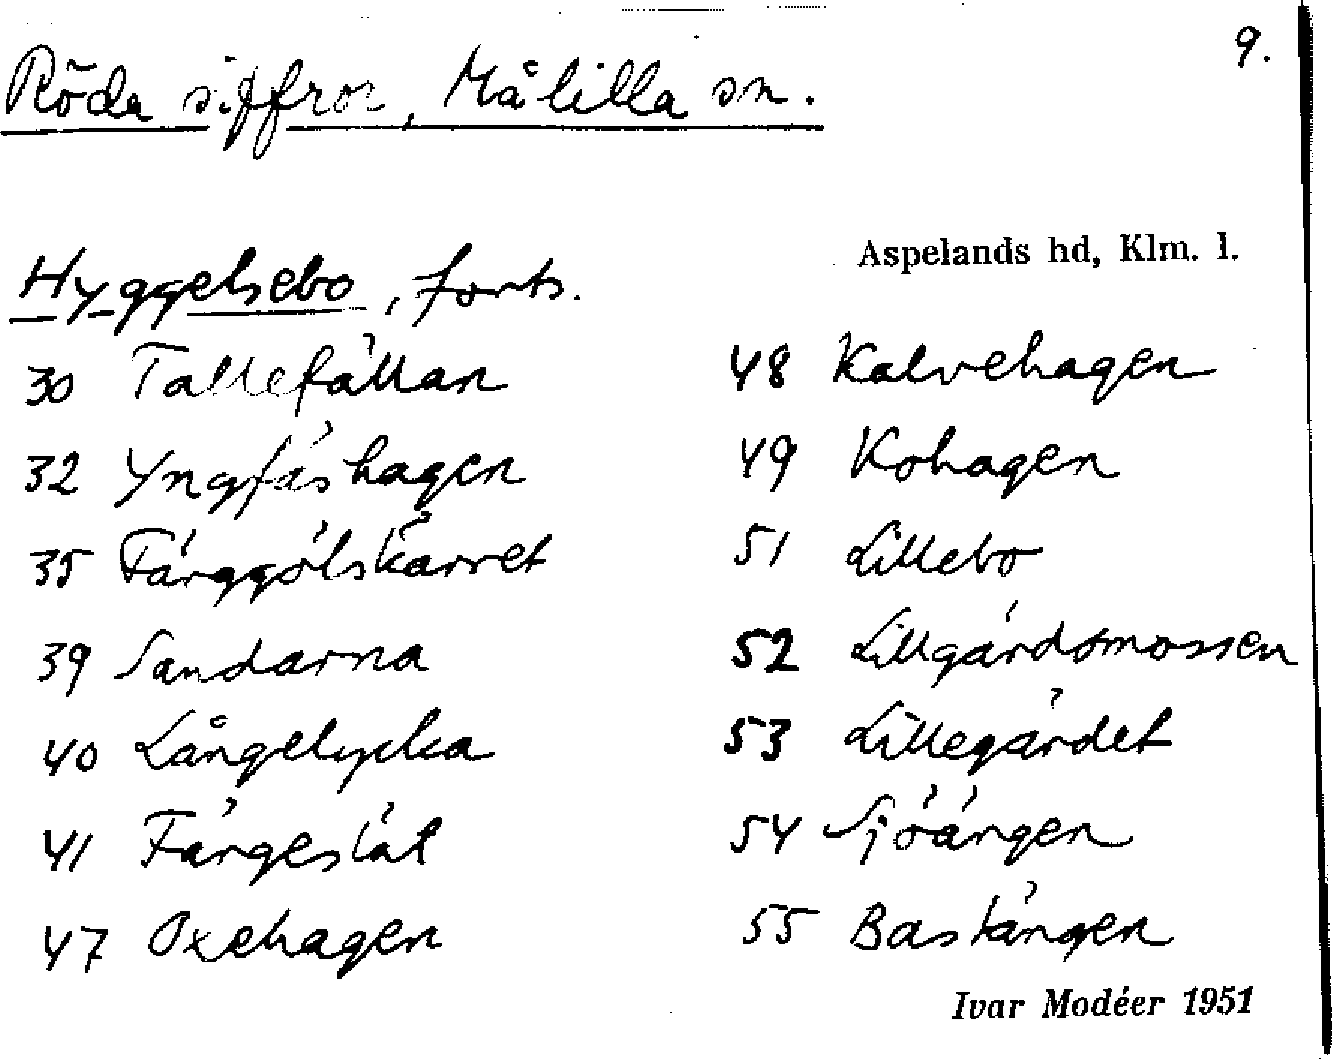 9.
Röda siffror, Målilla sn.
Aspelands hd, Klm. l.
Hyggelsebo, forts.
30 Tallefällan
32 Yngfäshagen
35 Färggölskärret
39 Sandarna
40 Långelycka
41 Färgeslät
47 Oxehagen
48 Kalvehagen
49 Kohagen
51 Lillebo
52 Lillgärdsmossen
53 Lillegärdet
54 Sjöängen
55 Bastängen
Ivar Modéer 1951